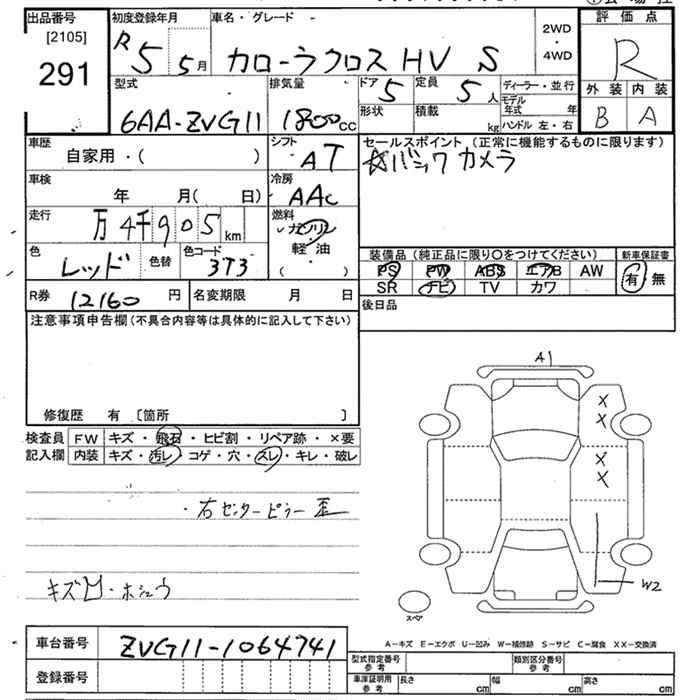 出品番号
[2105]
291
初度登録年月
R5 5月
車名・グレード
カローラクロス HV S
2WD
・
4WD
評価点
R
外装 内装
B A
型式
6AA-ZVG11
排気量
1800cc
ドア
5
定員
5人
形状
積載
kg
ディーラー・並行
モデル年式 年
ハンドル 左・右
車歴
自家用・( )
シフト
AT
セールスポイント (正常に機能するものに限ります)
☆バックカメラ
車検
年 月( 日)
冷房
AAC
走行
万4千905km
燃料
ガソリン
軽・油
( )
色
レッド
色替
色コード
3T3
装備品 (純正品に限り〇をつけてください)
PS PW ABS エアB AW
SR ナビ TV カワ
新車保証書
有 無
R券 12160円
名変期限 月 日
後日品
注意事項申告欄 (不具合内容等は具体的に記入して下さい)
修復歴 有 〔箇所 〕
検査員
記入欄
FW キズ・飛石・ヒビ割・リペア跡・×要
内装 キズ・汚レ・コゲ・穴・スレ・キレ・破レ
・右センターピラー歪
キズ凹・ホシュウ
A1
X
X
X
X
W2
スペア
車台番号 ZVG11-1064741
登録番号
A-キズ E-エクボ U-凹み W-補修跡 S-サビ C-腐食 XX-交換済
型式指定番号
参考
類別区分番号
参考
車庫証明用
参考
長さ cm
幅 cm
高さ cm